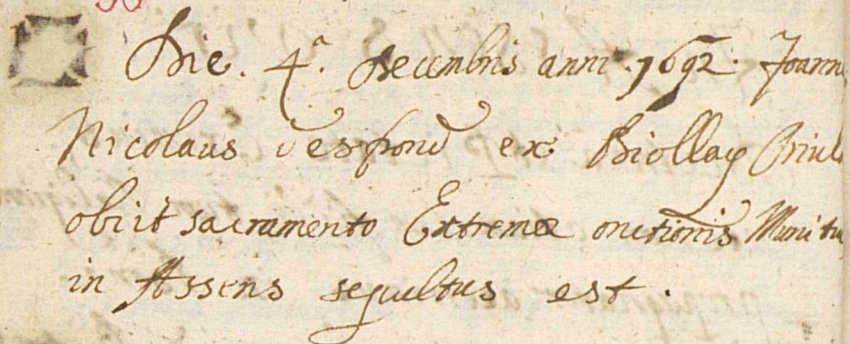 Die. 4.ª decembris anni. 1692. Joann
Nicolaus despond ex Biollay
obiit sacramento Extremæ onctionis Munitu
in Assens sepultus est.